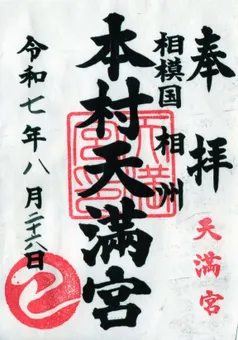 奉拝
相模国 相州
天満宮
本村天満宮
令和七年八月二十六日